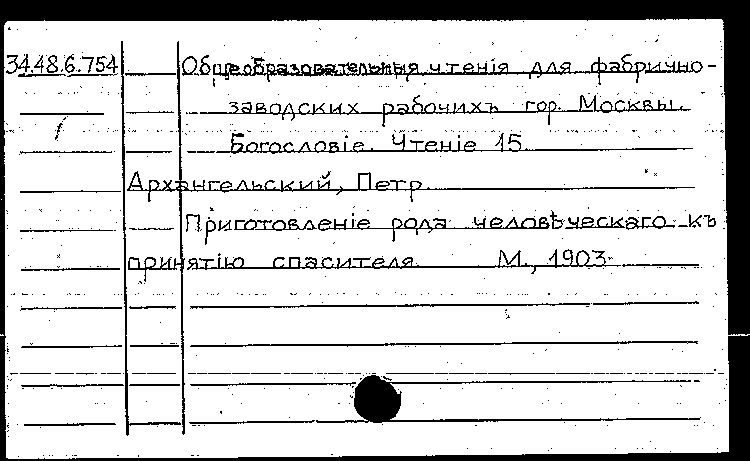 34.48.6.754 Общеобразовательныя чтенія для фабрично-
заводских рабочихъ гор. Москвы.
Богословіе. Чтеніе 15.
Архангельский, Петр.
Приготовленіе рода человѣческаго къ
принятію спасителя. М., 1903.